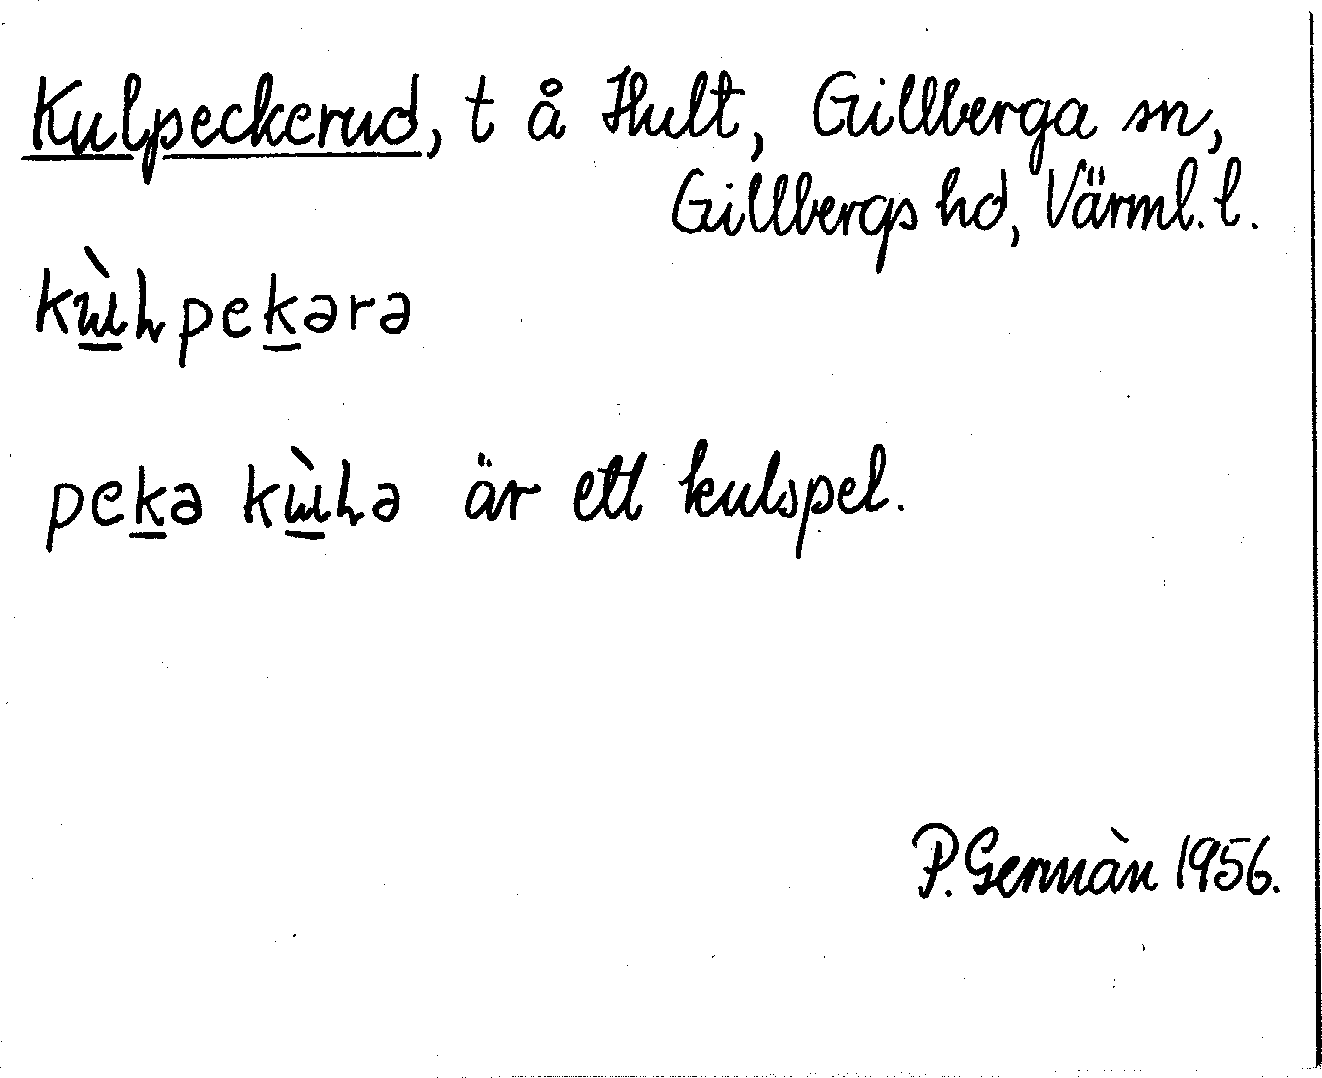 Kulpeckerud, t å Hult, Gillberga sn,
Gillbergs hd, Värml. l.
kɯ̀ɦpekərə
pekə kɯ̀ɦə är ett kulspel.
P. Germàn 1956.